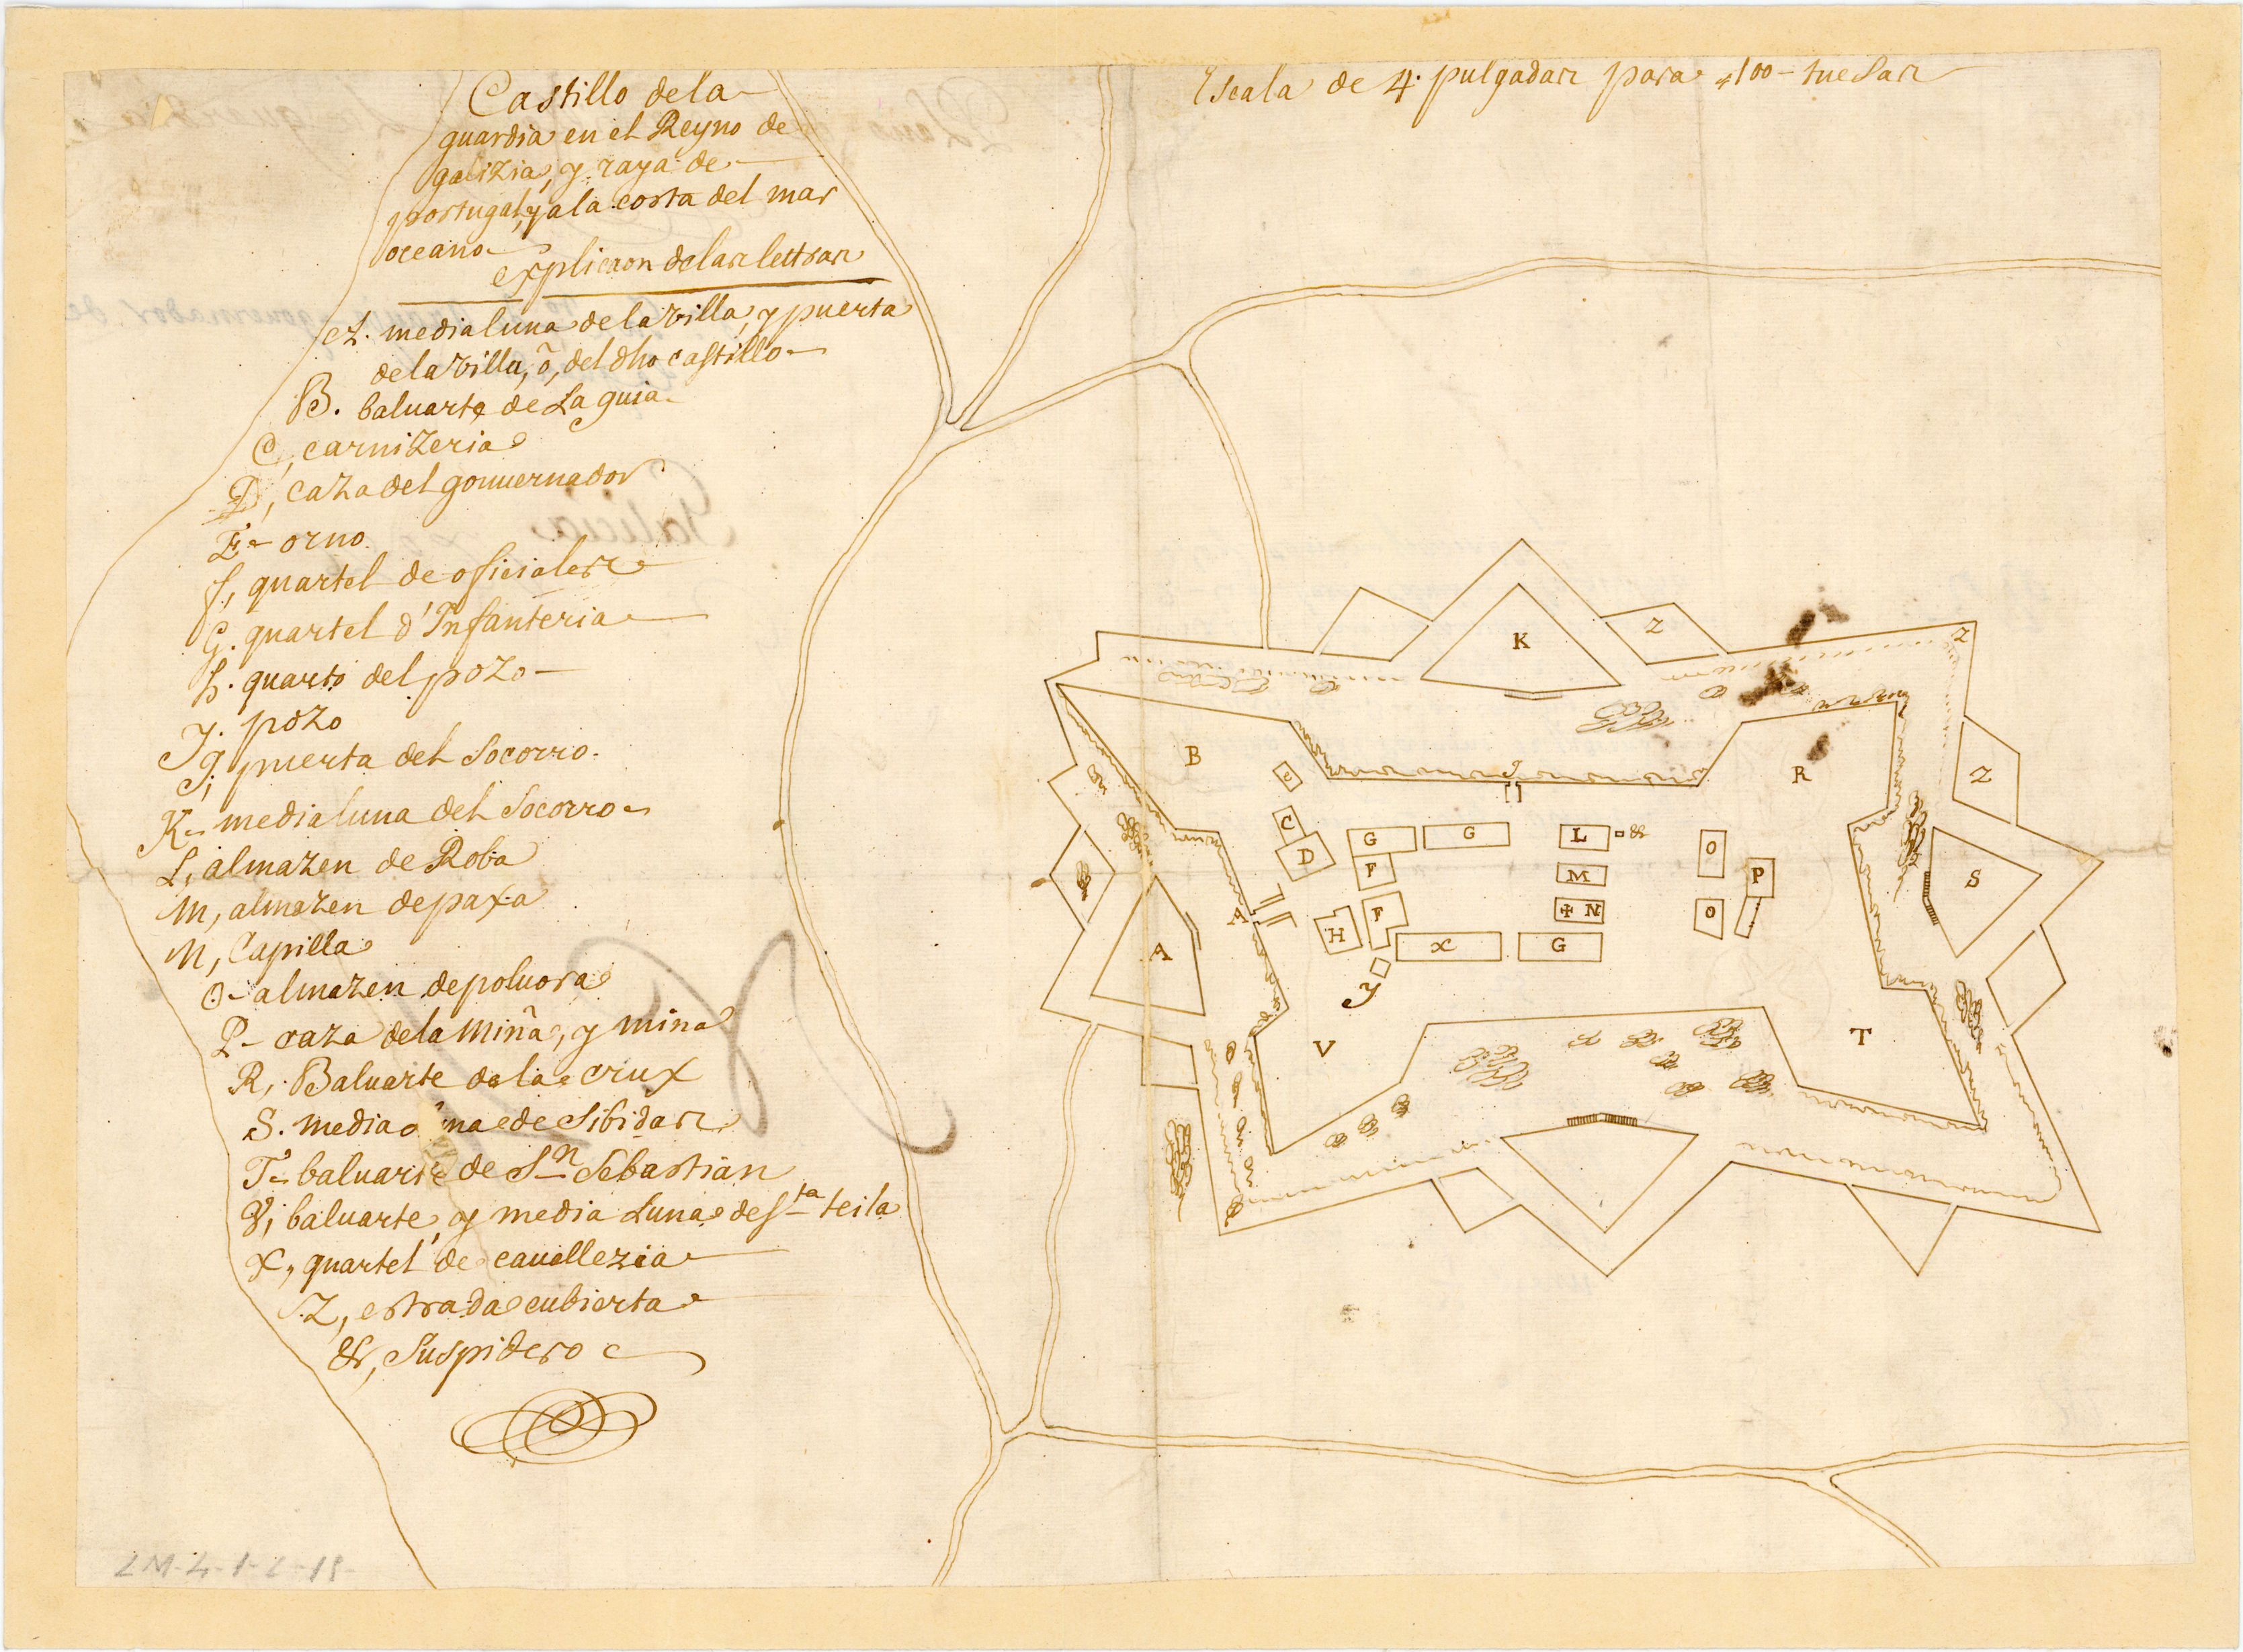 Castillo dela
guardia en el Reyno de
galizia, y raya de
portugal, y ala costa del mar
oceano
explicaon delas lettras
A. medialuna dela villa, y puerta
dela villa, õ, del dho castillo
B. baluarte de La guia
C, carnizeria
D, caza del gouuernador
E orno
f, quartel de oficiales
G. quartel d'Infanteria
h. quarto del pozo
J. pozo
J, puerta del Socorro.
K medialuna del Socorro
L, almazen de Roba
M, almazen depaxa
N, Capilla
O almazen depoluora
P caza dela Miña, y mina
R, Baluarte dela crux
S. media na de Sibidas
T baluarte de Sn Sebastian
V, baluarte, y media Luna de Sta teila
X, quartel de cauallezia
Z, estrada cubierta
&, Suspidero
Escala de 4. pulgadas para 100 tuesas
K
Z
Z
B
R
Z
C
C
G
G
L
&
O
D
F
M
P
S
A
H
F
N
O
A
X
G
J
V
T
Galicia
LM-4-1-2-18